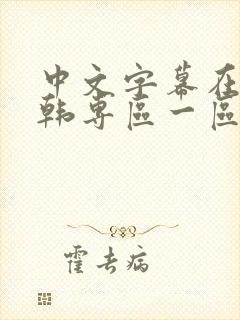 中文字幕在
韩専區一區
霍去病